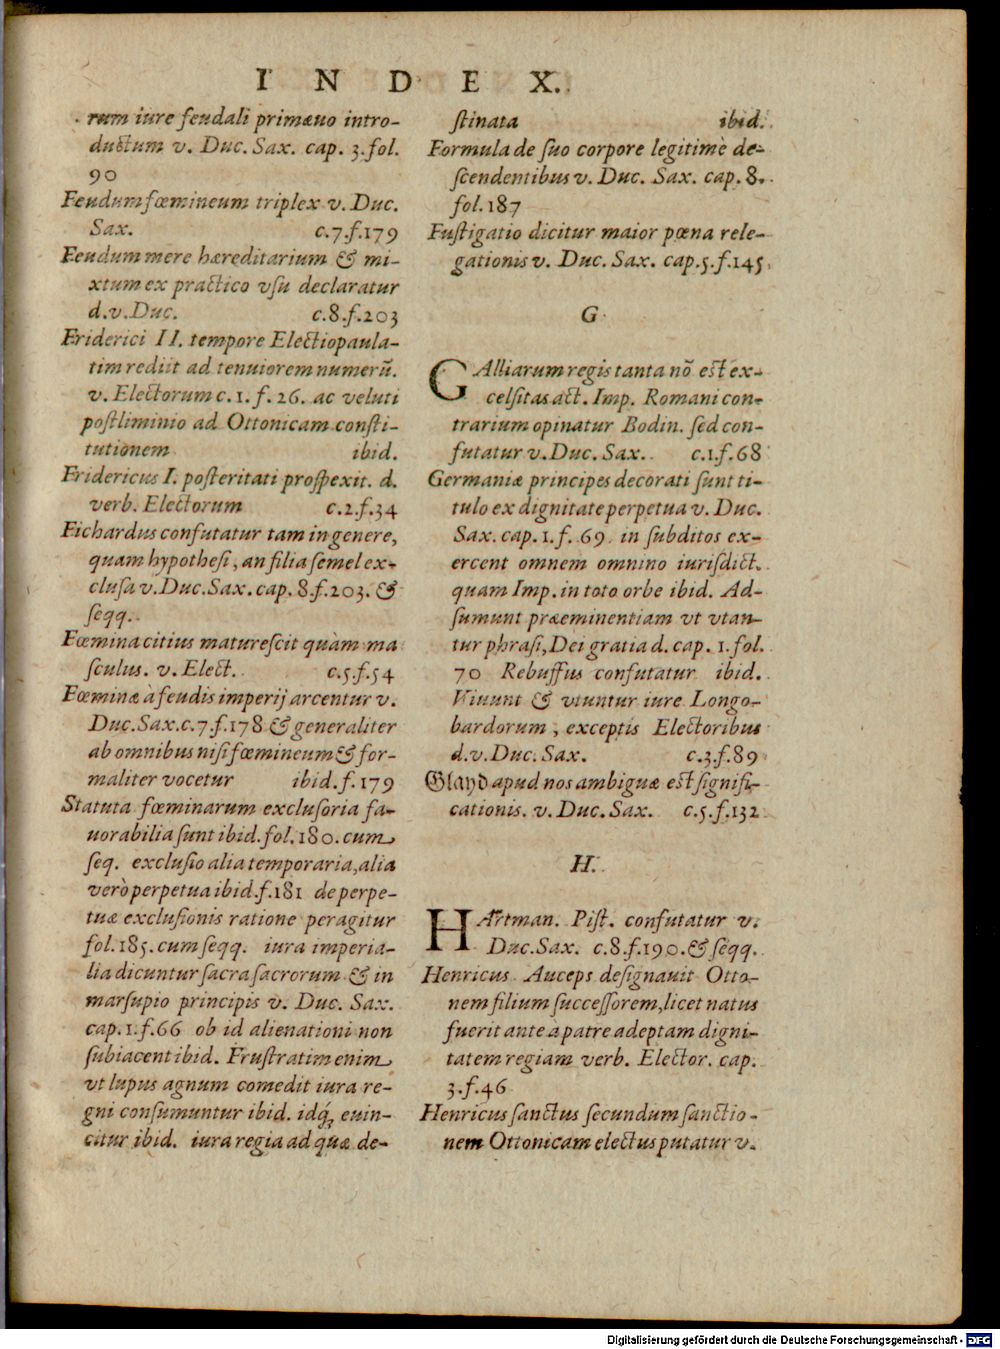 INDEX.
rum iure feudali primæuo intro-
ductum v. Duc. Sax. cap. 3. fol.
90
Feudum fœmineum triplex v. Duc.
Sax. c.7.f.179
Feudum mere hæreditarium & mi-
xtum ex practico vsu declaratur
d.v.Duc. c.8.f.203
Friderici II. tempore Electio paula-
tim rediit ad tenuiorem numerū.
v. Electorum c. 1. f. 26. ac veluti
postliminio ad Ottonicam consti-
tutionem ibid.
Fridericus I. posteritati prospexit. d.
verb. Electorum c.2.f.34
Fichardus confutatur tam in genere,
quam hypothesi, an filia semel ex-
clusa v. Duc. Sax. cap. 8.f.203. &
seqq.
Fœmina citius maturescit quàm ma
sculus. v. Elect. c.5.f.54
Fœminæ à feudis imperij arcentur v.
Duc. Sax. c.7.f.178 & generaliter
ab omnibus nisi fœmineum & for-
maliter vocetur ibid. f. 179
Statuta fœminarum exclusoria fa-
uorabilia sunt ibid. fol. 180. cum
seq. exclusio alia temporaria, alia
verò perpetua ibid. f. 181 de perpe-
tuæ exclusionis ratione peragitur
fol. 185. cum seqq. iura imperia-
lia dicuntur sacra sacrorum & in
marsupio principis v. Duc. Sax.
cap. 1. f. 66 ob id alienationi non
subiacent ibid. Frustratim enim
vt lupus agnum comedit iura re-
gni consumuntur ibid. idq́; euin-
citur ibid. iura regia ad quæ de-
stinata ibid.
Formula de suo corpore legitimè de-
scendentibus v. Duc. Sax. cap. 8.
fol. 187
Fustigatio dicitur maior pœna rele-
gationis v. Duc. Sax. cap. 5. f. 145
G
GAlliarum regis tanta nõ est ex-
celsitas act. Imp. Romani con-
trarium opinatur Bodin. sed con-
futatur v. Duc. Sax. c.1.f.68
Germaniæ principes decorati sunt ti-
tulo ex dignitate perpetua v. Duc.
Sax. cap. 1. f. 69 in subditos ex-
ercent omnem omnino iurisdict.
quam Imp. in toto orbe ibid. Ad-
sumunt præeminentiam vt vtan-
tur phrasi, Dei gratia d. cap. 1. fol.
70 Rebuffius confutatur ibid.
Viuunt & vtuntur iure Longo-
bardorum, exceptis Electoribus
d.v. Duc. Sax. c.3.f.89
Gland apud nos ambiguæ est signifi-
cationis. v. Duc. Sax. c.5.f.132
H.
HArtman. Pist. confutatur v.
Duc. Sax. c.8.f.190. & seqq.
Henricus Auceps designauit Otto-
nem filium successorem, licet natus
fuerit ante à patre adeptam digni-
tatem regiam verb. Elector. cap.
3.f.46
Henricus sanctus secundum sanctio-
nem Ottonicam electus putatur v.
Digitalisierung gefördert durch die Deutsche Forschungsgemeinschaft - DFG